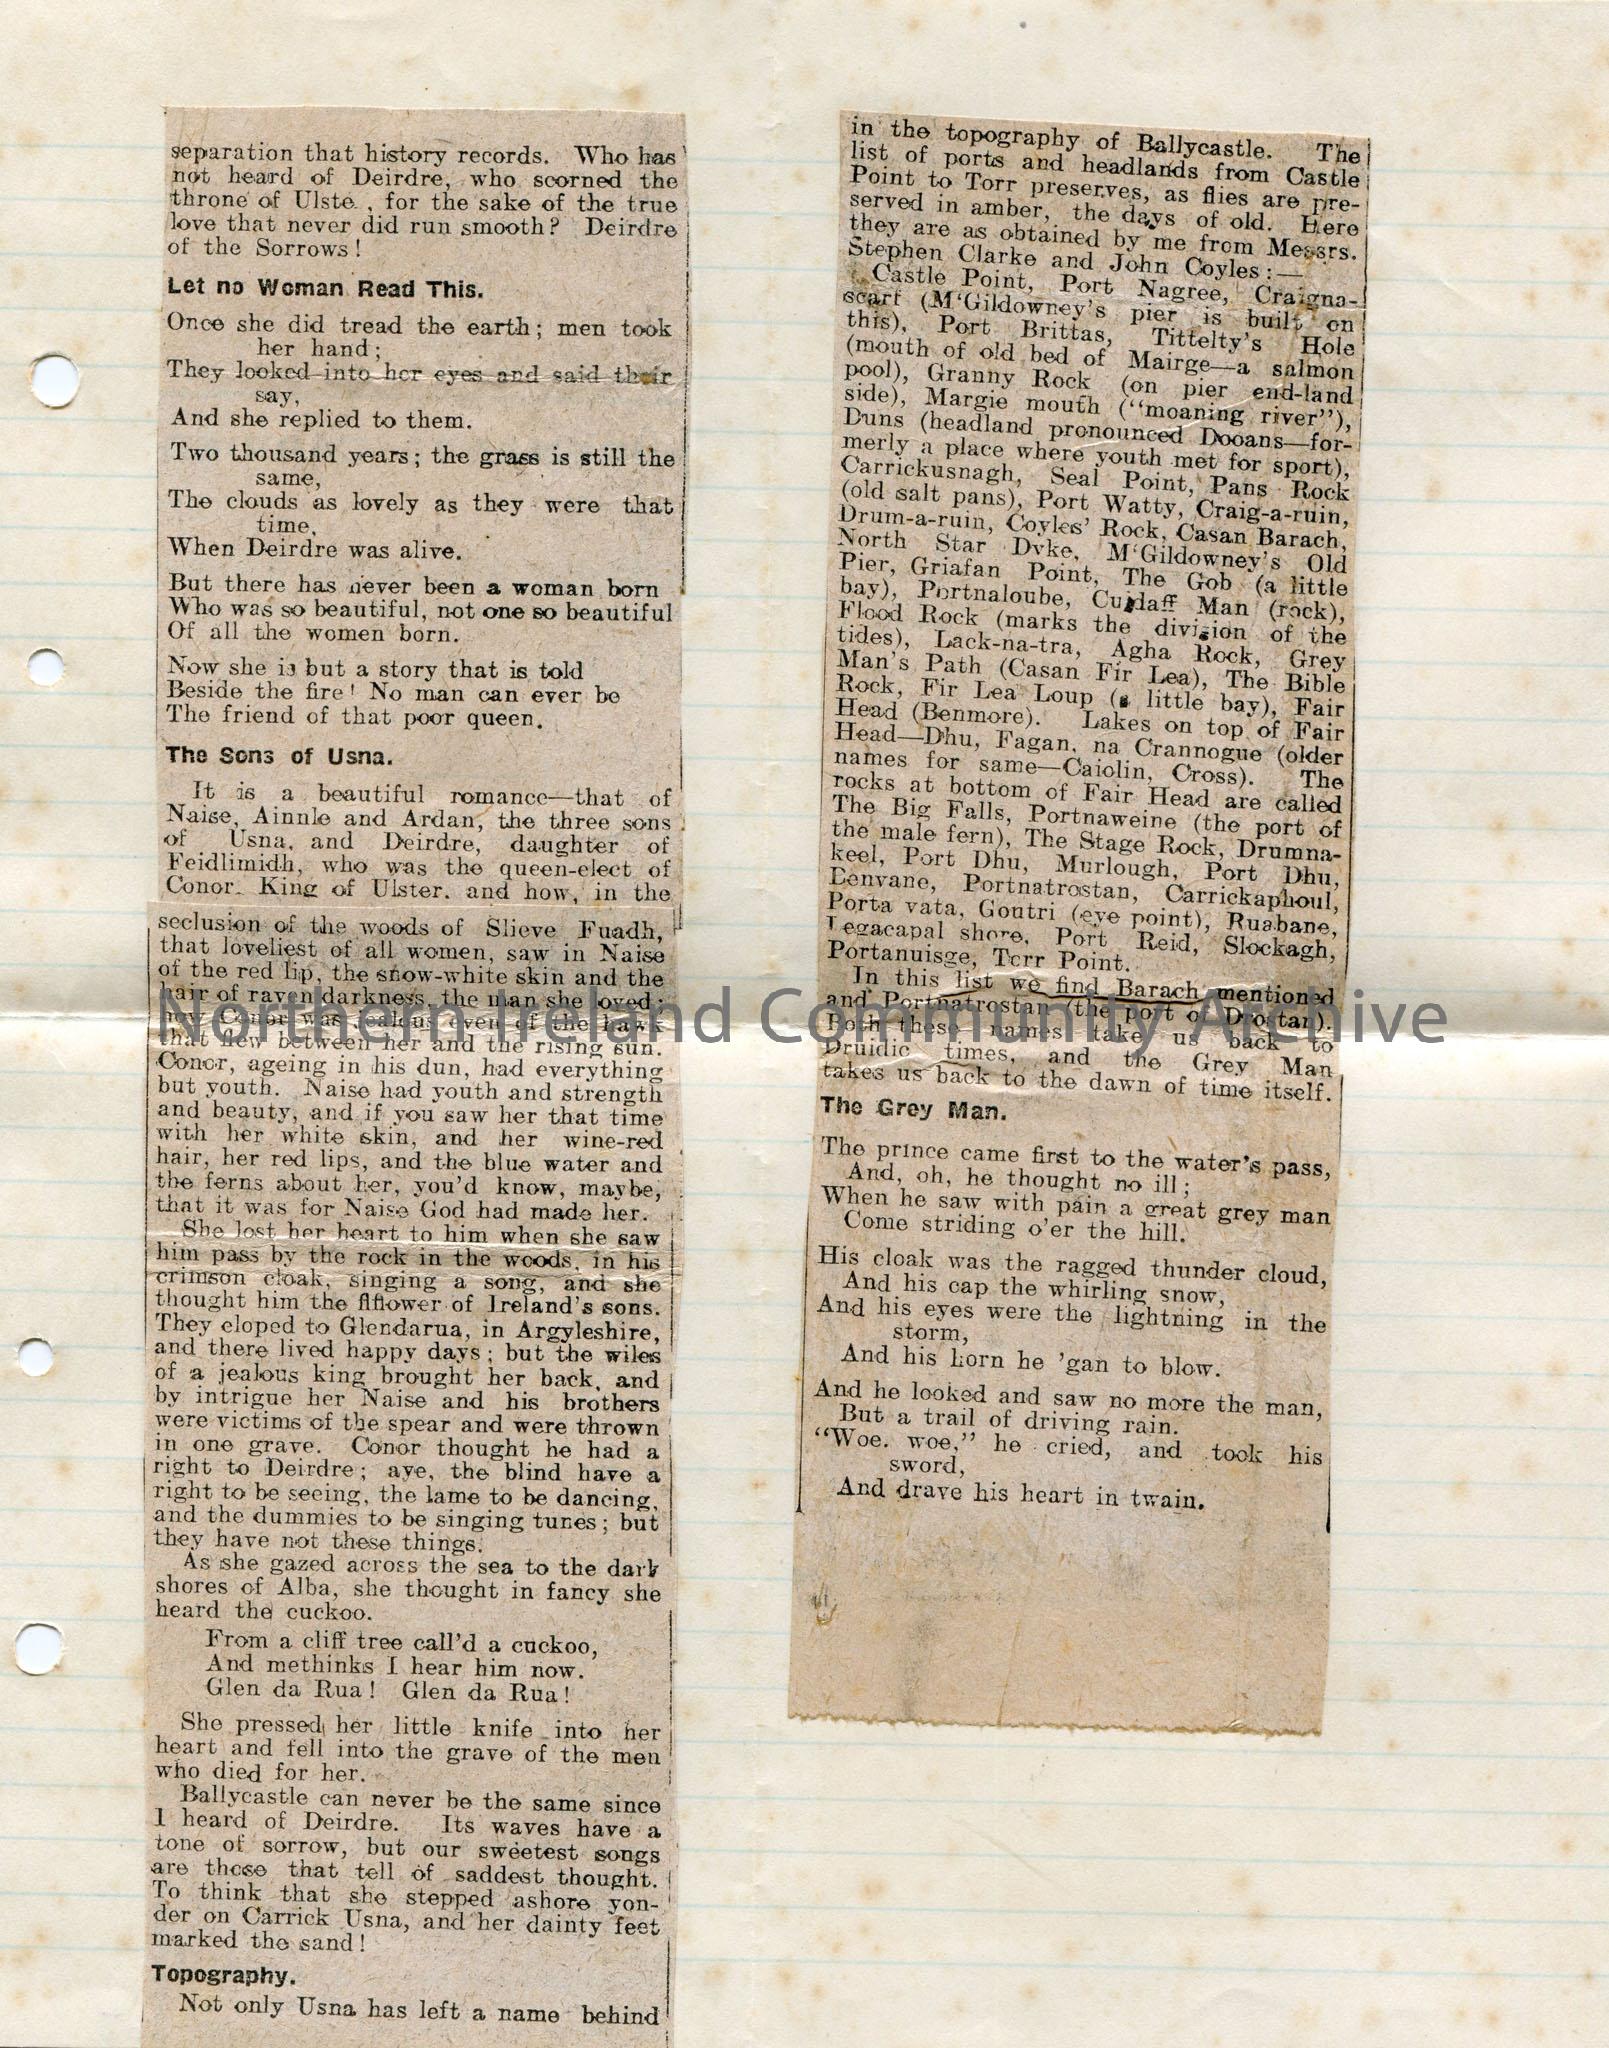 separation that history records. Who has
not heard of Deirdre, who scorned the
throne of Ulste , for the sake of the true
love that never did run smooth? Deirdre
of the Sorrows!
Let no Woman Read This.
Once she did tread the earth; men took
her hand;
They looked into her eyes and said their
say,
And she replied to them.
Two thousand years; the grass is still the
same,
The clouds as lovely as they were that
time,
When Deirdre was alive.
But there has never been a woman born
Who was so beautiful, not one so beautiful
Of all the women born.
Now she is but a story that is told
Beside the fire! No man can ever be
The friend of that poor queen.
The Sons of Usna.
It is a beautiful romance—that of
Naise, Ainnle and Ardan, the three sons
of Usna, and Deirdre, daughter of
Feidlimidh, who was the queen-elect of
Conor, King of Ulster, and how, in the
seclusion of the woods of Slieve Fuadh,
that loveliest of all women, saw in Naise
of the red lip, the snow-white skin and the
hair of raven darkness, the man she loved;
how Conor was jealous even of the hawk
that flew between her and the rising sun.
Conor, ageing in his dun, had everything
but youth. Naise had youth and strength
and beauty, and if you saw her that time
with her white skin, and her wine-red
hair, her red lips, and the blue water and
the ferns about her, you'd know, maybe,
that it was for Naise God had made her.
She lost her heart to him when she saw
him pass by the rock in the woods, in his
crimson cloak, singing a song, and she
thought him the flflower of Ireland's sons.
They eloped to Glendarua, in Argyleshire,
and there lived happy days; but the wiles
of a jealous king brought her back, and
by intrigue her Naise and his brothers
were victims of the spear and were thrown
in one grave. Conor thought he had a
right to Deirdre; aye, the blind have a
right to be seeing, the lame to be dancing,
and the dummies to be singing tunes; but
they have not these things.
As she gazed across the sea to the dark
shores of Alba, she thought in fancy she
heard the cuckoo.
From a cliff tree call'd a cuckoo,
And methinks I hear him now.
Glen da Rua! Glen da Rua!
She pressed her little knife into her
heart and fell into the grave of the men
who died for her.
Ballycastle can never be the same since
I heard of Deirdre. Its waves have a
tone of sorrow, but our sweetest songs
are those that tell of saddest thought.
To think that she stepped ashore yon-
der on Carrick Usna, and her dainty feet
marked the sand!
Topography.
Not only Usna has left a name behind
in the topography of Ballycastle. The
list of ports and headlands from Castle
Point to Torr preserves, as flies are pre-
served in amber, the days of old. Here
they are as obtained by me from Messrs.
Stephen Clarke and John Coyles:—
Castle Point, Port Nagree, Craigna-
scarf (M'Gildowney's pier is built on
this), Port Brittas, Tittelty's Hole
(mouth of old bed of Mairge—a salmon
pool), Granny Rock (on pier end-land
side), Margie mouth ("moaning river"),
Duns (headland pronounced Dooans—for-
merly a place where youth met for sport),
Carrickusnagh, Seal Point, Pans Rock
(old salt pans), Port Watty, Craig-a-ruin,
Drum-a-ruin, Coyles' Rock, Casan Barach,
North Star Dyke, M'Gildowney's Old
Pier, Griafan Point, The Gob (a little
bay), Portnaloube, Man (rock),
Flood Rock (marks the division of the
tides), Lack-na-tra, Agha Rock, Grey
Man's Path (Casan Fir Lea), The Bible
Rock, Fir Lea Loup (a little bay), Fair
Head (Benmore). Lakes on top of Fair
Head—Dhu, Fagan, na Crannogue (older
names for same—Caiolin, Cross). The
rocks at bottom of Fair Head are called
The Big Falls, Portnaweine (the port of
the male fern), The Stage Rock, Drumna-
keel, Port Dhu, Murlough, Port Dhu,
Benvane, Portnatrostan, Carrickaphoul,
Porta vata, Goutri (eye point), Ruabane,
Legacapal shore, Port Reid, Slockagh,
Portanuisge, Torr Point.
In this list we find Barach mentioned
and Portnatrostan (the port of Drostan).
Both these names take us back to
Druidic times, and the Grey Man
takes us back to the dawn of time itself.
The Grey Man.
The prince came first to the water's pass,
And, oh, he thought no ill;
When he saw with pain a great grey man
Come striding o'er the hill.
His cloak was the ragged thunder cloud,
And his cap the whirling snow,
And his eyes were the lightning in the
storm,
And his horn he 'gan to blow.
And he looked and saw no more the man,
But a trail of driving rain.
"Woe. woe," he cried, and took his
sword,
And drave his heart in twain.
Northern Ireland Community Archive